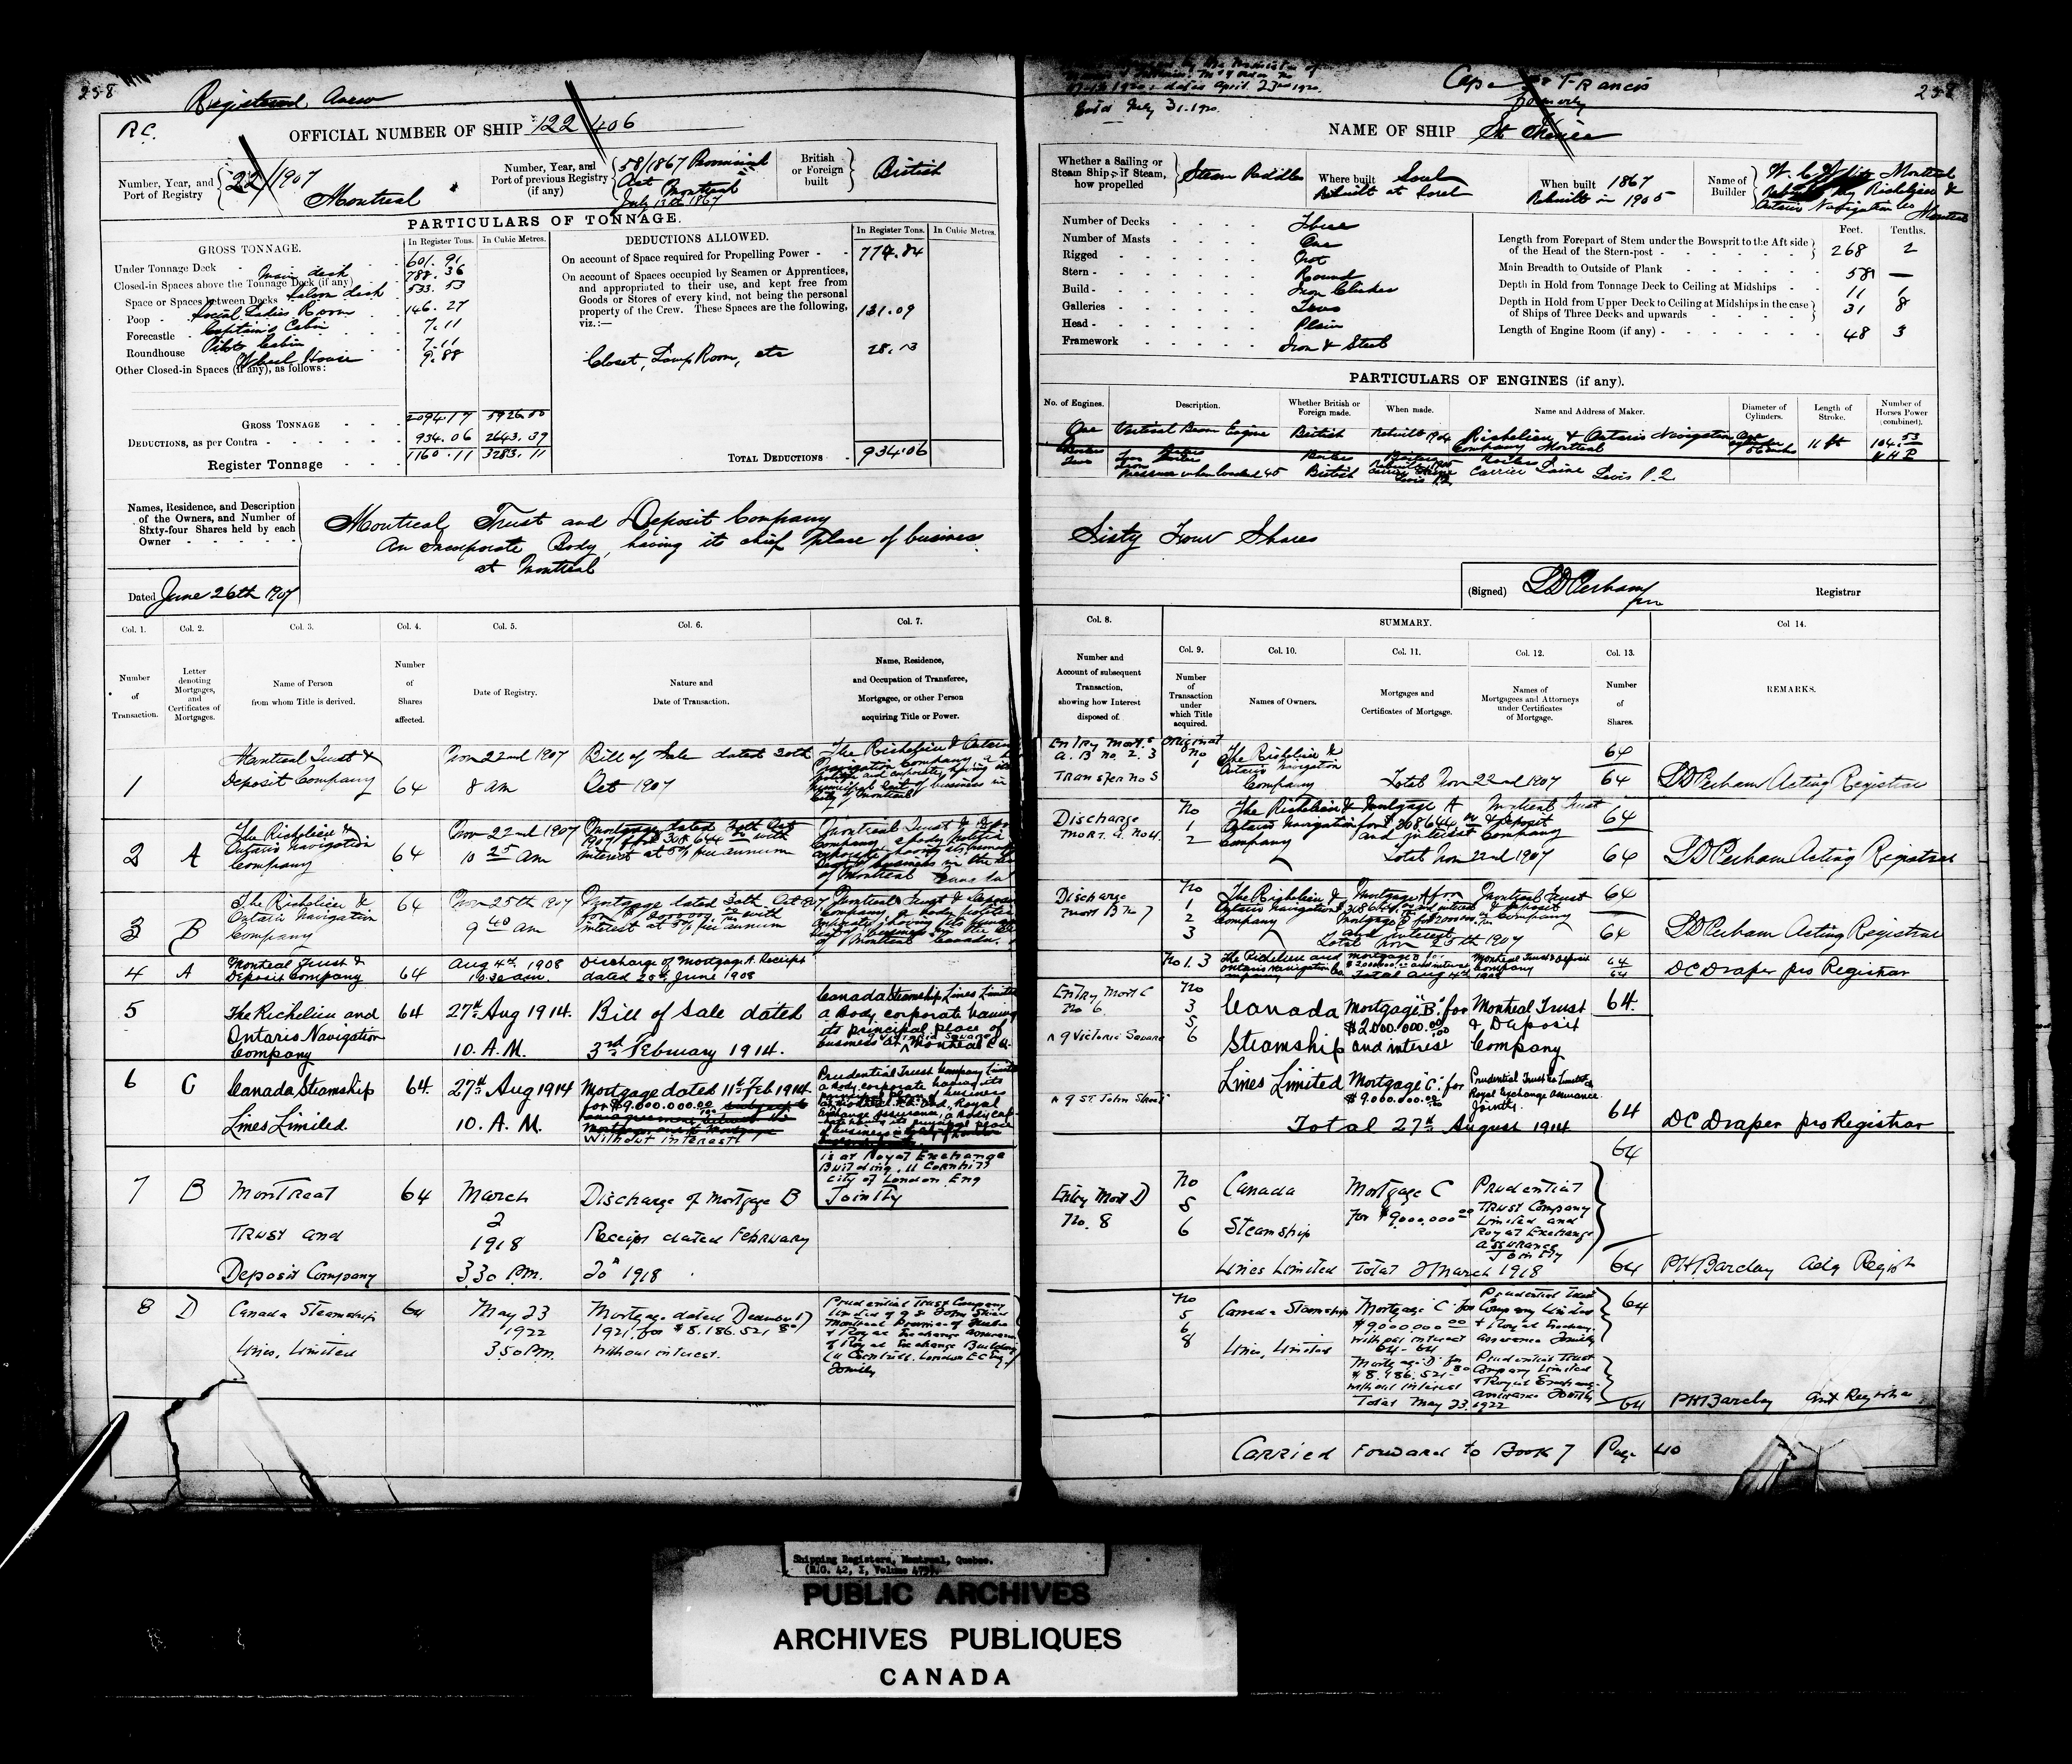 258
Registered Anew
R.C.
OFFICIAL NUMBER OF SHIP 122406
Number, Year, and Port of Registry 22/1907
Montreal
Number, Year, and Port of previous Registry (if any) 58/1867 Provincial
Act Montreal
July 12th 1867
British or Foreign built British
PARTICULARS OF TONNAGE.
GROSS TONNAGE.
In Register Tons. In Cubic Metres.
Under Tonnage Deck 601.91
Closed-in Spaces above the Tonnage Deck (if any) Main deck 788.36
Space or Spaces between Decks Saloon deck 533.53
Poop Social Ladies Room 146.27
Forecastle Captain's Cabin 7.11
Roundhouse Pilots Cabin 7.11
Other Closed-in Spaces (if any), as follows: Wheel House 9.88
GROSS TONNAGE 2094.17 5926.50
DEDUCTIONS, as per Contra 934.06 2643.39
Register Tonnage 1160.11 3283.11
DEDUCTIONS ALLOWED.
In Register Tons. In Cubic Metres.
On account of Space required for Propelling Power 774.84
On account of Spaces occupied by Seamen or Apprentices,
and appropriated to their use, and kept free from
Goods or Stores of every kind, not being the personal
property of the Crew. These Spaces are the following,
viz.:— 131.09
Closet, Lamp Room, etc 28.13
TOTAL DEDUCTIONS 934.06
Names, Residence, and Description
of the Owners, and Number of
Sixty-four Shares held by each
Owner
Montreal Trust and Deposit Company
An Incorporate Body, having its chief place of business
at Montreal
Dated June 26th 1907
Col. 1. Col. 2. Col. 3. Col. 4. Col. 5. Col. 6. Col. 7.
Number of Transaction.
Letter denoting Mortgages, and Certificates of Mortgages.
Name of Person from whom Title is derived.
Number of Shares affected.
Date of Registry.
Nature and Date of Transaction.
Name, Residence, and Occupation of Transferee, Mortgagee, or other Person acquiring Title or Power.
1 Montreal Trust & Deposit Company 64 Nov 22nd 1907 8 am Bill of Sale dated 30th Oct 1907 The Richelieu & Ontario Navigation Company
2 A The Richelieu & Ontario Navigation Company 64 Nov 22nd 1907 10 25 am Mortgage dated 30th Oct 1907 for $308644 with interest at 5% per annum Montreal Trust & Deposit Company
3 B The Richelieu & Ontario Navigation Company 64 Nov 25th 1907 9 40 am Mortgage dated 30th Oct 1907 for $2000000 with interest at 5% per annum Montreal Trust & Deposit Company
4 A Montreal Trust & Deposit Company 64 Aug 4th 1908 Discharge of Mortgage A. Receipt dated 25th June 1908
5 The Richelieu and Ontario Navigation Company 64 27th Aug 1914. 10. A.M. Bill of Sale dated 3rd February 1914. Canada Steamship Lines Limited a Body corporate having its principal place of business at 9 Victoria Square Montreal P.Q.
6 C Canada Steamship Lines Limited 64. 27th Aug 1914 10. A.M. Mortgage dated 11th Feb 1914 for $9.000.000.00 without interest Prudential Trust Company Limited a body corporate having its
is at Royal Exchange
Building, 11 Cornhill
City of London Eng
Jointly
7 B Montreal Trust and Deposit Company 64 March 2 1918 3.30 P.M. Discharge of Mortgage B Receipt dated February 20th 1918
8 D Canada Steamship Lines, Limited 64 May 23 1922 3.50 P.M. Mortgage dated December 1921, for $8.186.521 without interest. Prudential Trust Company Limited of 9 St John Street Montreal Province of Quebec & Royal Exchange Assurance of Royal Exchange Building 11 Cornhill, London EC Eng, Jointly
April 23rd 1920.
July 31. 1920
Cape St Francis
formerly
258
NAME OF SHIP St Irénée
Whether a Sailing or Steam Ship; if Steam, how propelled Steam Paddles
Where built Sorel
Rebuilt at Sorel
When built 1867
Rebuilt in 1905
Name of Builder
Montreal
Rebuilt by Richelieu &
Ontario Navigation Co
Montreal
Number of Decks Three
Number of Masts One
Rigged Not
Stern Round
Build Iron Clicker
Galleries Two
Head Plain
Framework Iron & Steel
Feet. Tenths.
Length from Forepart of Stem under the Bowsprit to the Aft side of the Head of the Stern-post 268 2
Main Breadth to Outside of Plank 58 —
Depth in Hold from Tonnage Deck to Ceiling at Midships 11 1
Depth in Hold from Upper Deck to Ceiling at Midships in the case of Ships of Three Decks and upwards 31 8
Length of Engine Room (if any) 48 3
PARTICULARS OF ENGINES (if any).
No. of Engines. Description. Whether British or Foreign made. When made. Name and Address of Maker. Diameter of Cylinders. Length of Stroke. Number of Horses Power (combined).
One Vertical Beam Engine British Rebuilt 1904 Richelieu & Ontario Navigation Company Montreal 11 ft 104.53 N H P
Two Iron Pressure when loaded 45 British Carrier Laine Levis P.Q
Sixty Four Shares
(Signed) L D Perham Registrar
Col. 8. SUMMARY. Col 14.
Number and Account of subsequent Transaction, showing how Interest disposed of.
Col. 9. Col. 10. Col. 11. Col. 12. Col. 13.
Number of Transaction under which Title acquired.
Names of Owners.
Mortgages and Certificates of Mortgage.
Names of Mortgagees and Attorneys under Certificates of Mortgage.
Number of Shares.
REMARKS.
Entry Mort.s A. B No. 2. 3 Transfer No 5 Original No 1 The Richelieu & Ontario Navigation Company Total Nov 22nd 1907 64 64 L D Perham Acting Registrar
Discharge Mort. A. No 4. No 1 2 The Richelieu & Ontario Navigation Company Mortgage A for $308644 and interest Montreal Trust & Deposit Company Total Nov 22nd 1907 64 64 L D Perham Acting Registrar
Discharge Mort B No 7 No 1 2 3 The Richelieu & Ontario Navigation Company Mortgage A for $308644 and interest Mortgage B for $2000000 and interest Montreal Trust & Deposit Company Total Nov 25th 1907 64 64 L D Perham Acting Registrar
No 1. 3 The Richelieu and Ontario Navigation Co. Mortgage B for $2000000 and interest Montreal Trust & Deposit Company Total Aug 4th 1908 64 64 D C Draper pro Registrar
Entry Mort C No 6. ^ 9 Victoria Square No 3 5 6 Canada Steamship Lines Limited Mortgage "B" for $2.000.000.00 and interest Montreal Trust & Deposit Company 64.
^ 9 St John Street Mortgage "C" for $9.000.000.00 Prudential Trust Co Limited & Royal Exchange Assurance Jointly. 64
Total 27th August 1914 D C Draper pro Registrar
Entry Mort D No. 8 No 5 6 Canada Steamship Lines Limited Mortgage C for $9.000.000.00 Prudential Trust Company Limited and Royal Exchange Assurance Jointly 64
Total 2 March 1918 64 P H Barclay Actg Regist
No 5 6 8 Canada Steamship Lines, Limited Mortgage 'C' for $9.000.000.00 without interest 64-64 Prudential Trust Company Limited & Royal Exchange Assurance Jointly 64
Mortgage 'D' for $8.186.521 without interest Prudential Trust Company Limited & Royal Exchange Assurance Jointly
Total May 23. 1922 64 P H Barclay
Carried Forward to Book 7 Page 40
Shipping Registers, Montreal, Quebec.
(R.G. 42, I, Volume
PUBLIC ARCHIVES
ARCHIVES PUBLIQUES
CANADA